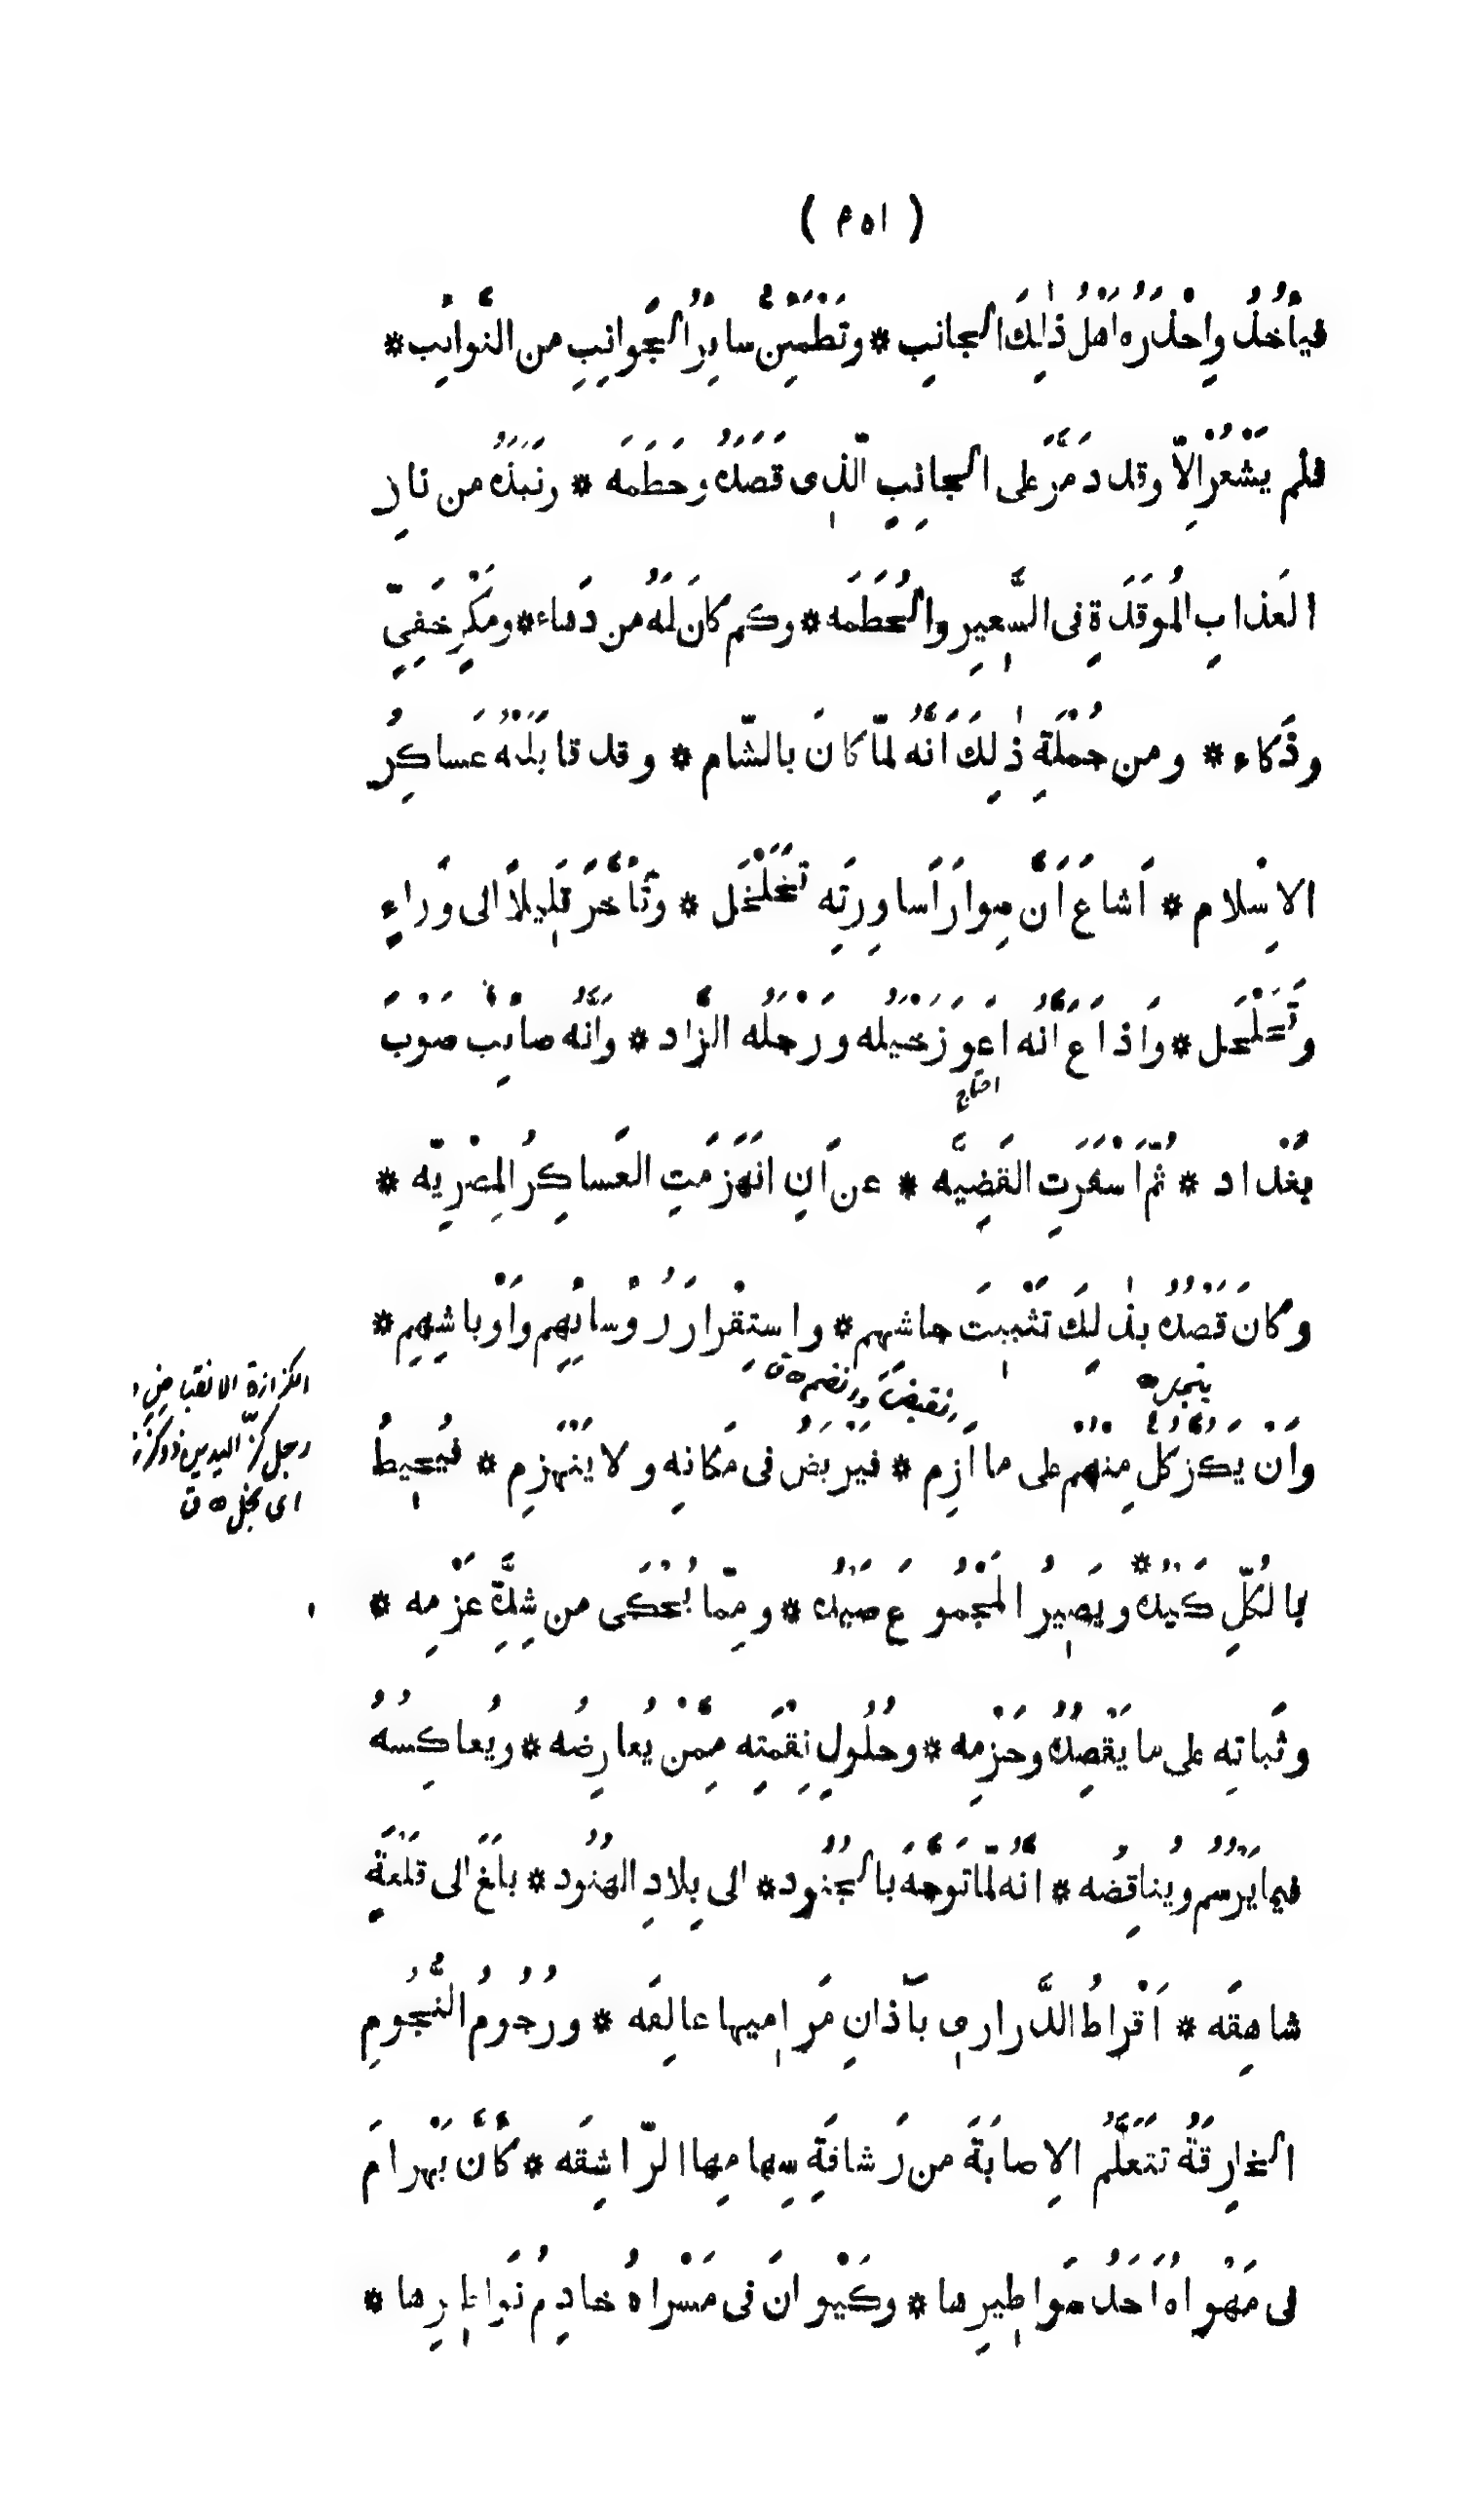 ( ٢٥١ )
فيَأْخُذُ واِحْذَرَهُ اَهْلُ ذٰلِكَ الجانِبِ * وتَطْمَئِنُّ سايِرُ الجَوانِبِ من النَّوائِب *
فلم يَشْعُرْ اِلاّ وقد دَمَّرَ على الجانِبِ الّذِى قَصَدَهُ وحَطَمَه * ونَبَذَهُ من نارِ
العَذابِ المُوقَدَةِ فى السَّعِيرِ والحُطَمَه * وكم كانَ لَهُ من دَهاء * ومَكْرٍ خَفِيّ
وذَكاء * ومن جُمْلَةِ ذٰلِكَ اَنَّهُ لمّا كانَ بالشّام * وقد قابَلَتْهُ عَساكِرُ
الاِسْلام * اَشاعَ اَنَّ سِوارَ اَساوِرَتِه تَخَلْخَل * وتَأَخَّرَ قَلِيلاً الى وَراءِ
وتَحَلْحَل * واَذاعَ اَنَّهُ اَعْوَزَ خَيْلَه ورَجْلَه الزّاد * واَنَّه صائِبٌ صَوْبَ
احتاج
بَغْداد * ثُمّ اَسْفَرَتِ القَضِيَّه * عن اَنِ انهَزَمَتِ العَساكِرُ المِصْرِيّه *
وكانَ قَصْدُهُ بذٰلِكَ تَثْبِيتَ جاشهم * واِستِقْرارَ رُؤسائِهِم واَوْباشِهِم *
واَنْ يَكُزَّ كُلٌّ مِنْهُم على ما اَزِم * فيَرْبَضُ فى مَكانِه ولا يَنْهَزِم * فيُحِيطُ
الكزازة الانقباض
رجل كزّ اليدين ذو كزز
اى بخل ه ق
بالكُلِّ كَيْدُهُ ويَصِيرُ المَجْمُوعُ صَيْدَهُ * ومِمّا يُحْكَى من شِدَّةِ عَزْمِه *
وثَباتِه على ما يَقْصِدُهُ وحَزْمِه * وحُلُولِ نِقْمَتِه مِمَّنْ يُعارِضُه * ويُعاكِسُهُ
فيما يَرْسُمُ ويُناقِضُه * اَنَّهُ لمّا تَوَجَّهَ بالجُنُود * الى بِلادِ الهُنُود * بلَغَ الى قَلْعَةٍ
شاهِقَه * اَقْراطُ الدَّرارِى بآذانِ مَرامِيها عالِقَه * ورُجُومُ النُّجُومِ
الخارِقَةُ تتَعَلَّمُ الاِصابَةَ من رَشاقَةِ سِهامِها الرّاشِقَه * كَأَنَّ بَهْرامَ
فى مَهْواهُ اَحَدُ سَواطِيرِها * وكَيْوانَ فى مَسْراهُ خادِمُ نَواطِيرِها *